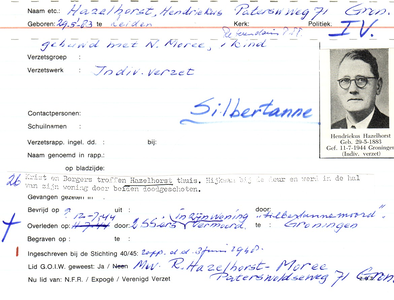 Naam etc.: Hazelhorst, Hendriekus Patersweg 71 Gron.
Geboren: 29.5.'83 te Leiden Kerk: Politiek.
IV.
gehuwd met N. Moree, 1 kind
Verzetsgroep :
Verzetswerk : Indiv. verzet
Silbertanne
Contactpersonen:
Schuilnamen :
Verzetsrapp. ingel. dd. : bij:
Naam genoemd in rapp.:
op bladzijde:
Hendriekus Hazelhorst
Geb. 29-5-1883
Gef. 11-7-1944 Groningen
(Indiv. verzet)
26 Krist en Borgers troffen Hazelhorst thuis. Hij kwam bij de deur en werd in de hal
van zijn woning door beiden doodgeschoten.
Gevangen gezeten in :
Bevrijd op : uit : in zijn woning
Overleden op: 11-7-'44 door: 2 SS'ers vermoord. te: Groningen
Begraven op : te :
Ingeschreven bij de Stichting 40/45: rapp. d.d. 3 juni 1948.
Lid G.O.I.W. geweest: Ja / Neen Mw. R. Hazelhorst-Moree
Nu lid van: N.F.R. / Expogé / Verenigd Verzet Paterswoldseweg 71 Gron.